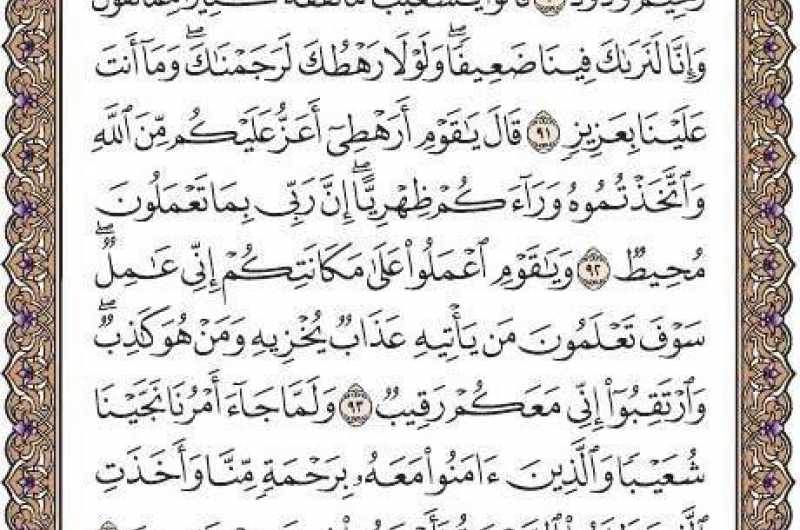 رَحِيمٌ وَدُودٌ ۝٩٠ قَالُوا۟ يَـٰشُعَيْبُ مَا نَفْقَهُ كَثِيرًا مِّمَّا تَقُولُ
وَإِنَّا لَنَرَىٰكَ فِينَا ضَعِيفًا ۖ وَلَوْلَا رَهْطُكَ لَرَجَمْنَـٰكَ ۖ وَمَآ أَنتَ
عَلَيْنَا بِعَزِيزٍ ۝٩١ قَالَ يَـٰقَوْمِ أَرَهْطِىٓ أَعَزُّ عَلَيْكُم مِّنَ ٱللَّهِ
وَٱتَّخَذْتُمُوهُ وَرَآءَكُمْ ظِهْرِيًّا ۖ إِنَّ رَبِّى بِمَا تَعْمَلُونَ
مُحِيطٌ ۝٩٢ وَيَـٰقَوْمِ ٱعْمَلُوا۟ عَلَىٰ مَكَانَتِكُمْ إِنِّى عَـٰمِلٌ ۖ
سَوْفَ تَعْلَمُونَ مَن يَأْتِيهِ عَذَابٌ يُخْزِيهِ وَمَنْ هُوَ كَـٰذِبٌ ۖ
وَٱرْتَقِبُوٓا۟ إِنِّى مَعَكُمْ رَقِيبٌ ۝٩٣ وَلَمَّا جَآءَ أَمْرُنَا نَجَّيْنَا
شُعَيْبًا وَٱلَّذِينَ ءَامَنُوا۟ مَعَهُۥ بِرَحْمَةٍ مِّنَّا وَأَخَذَتِ